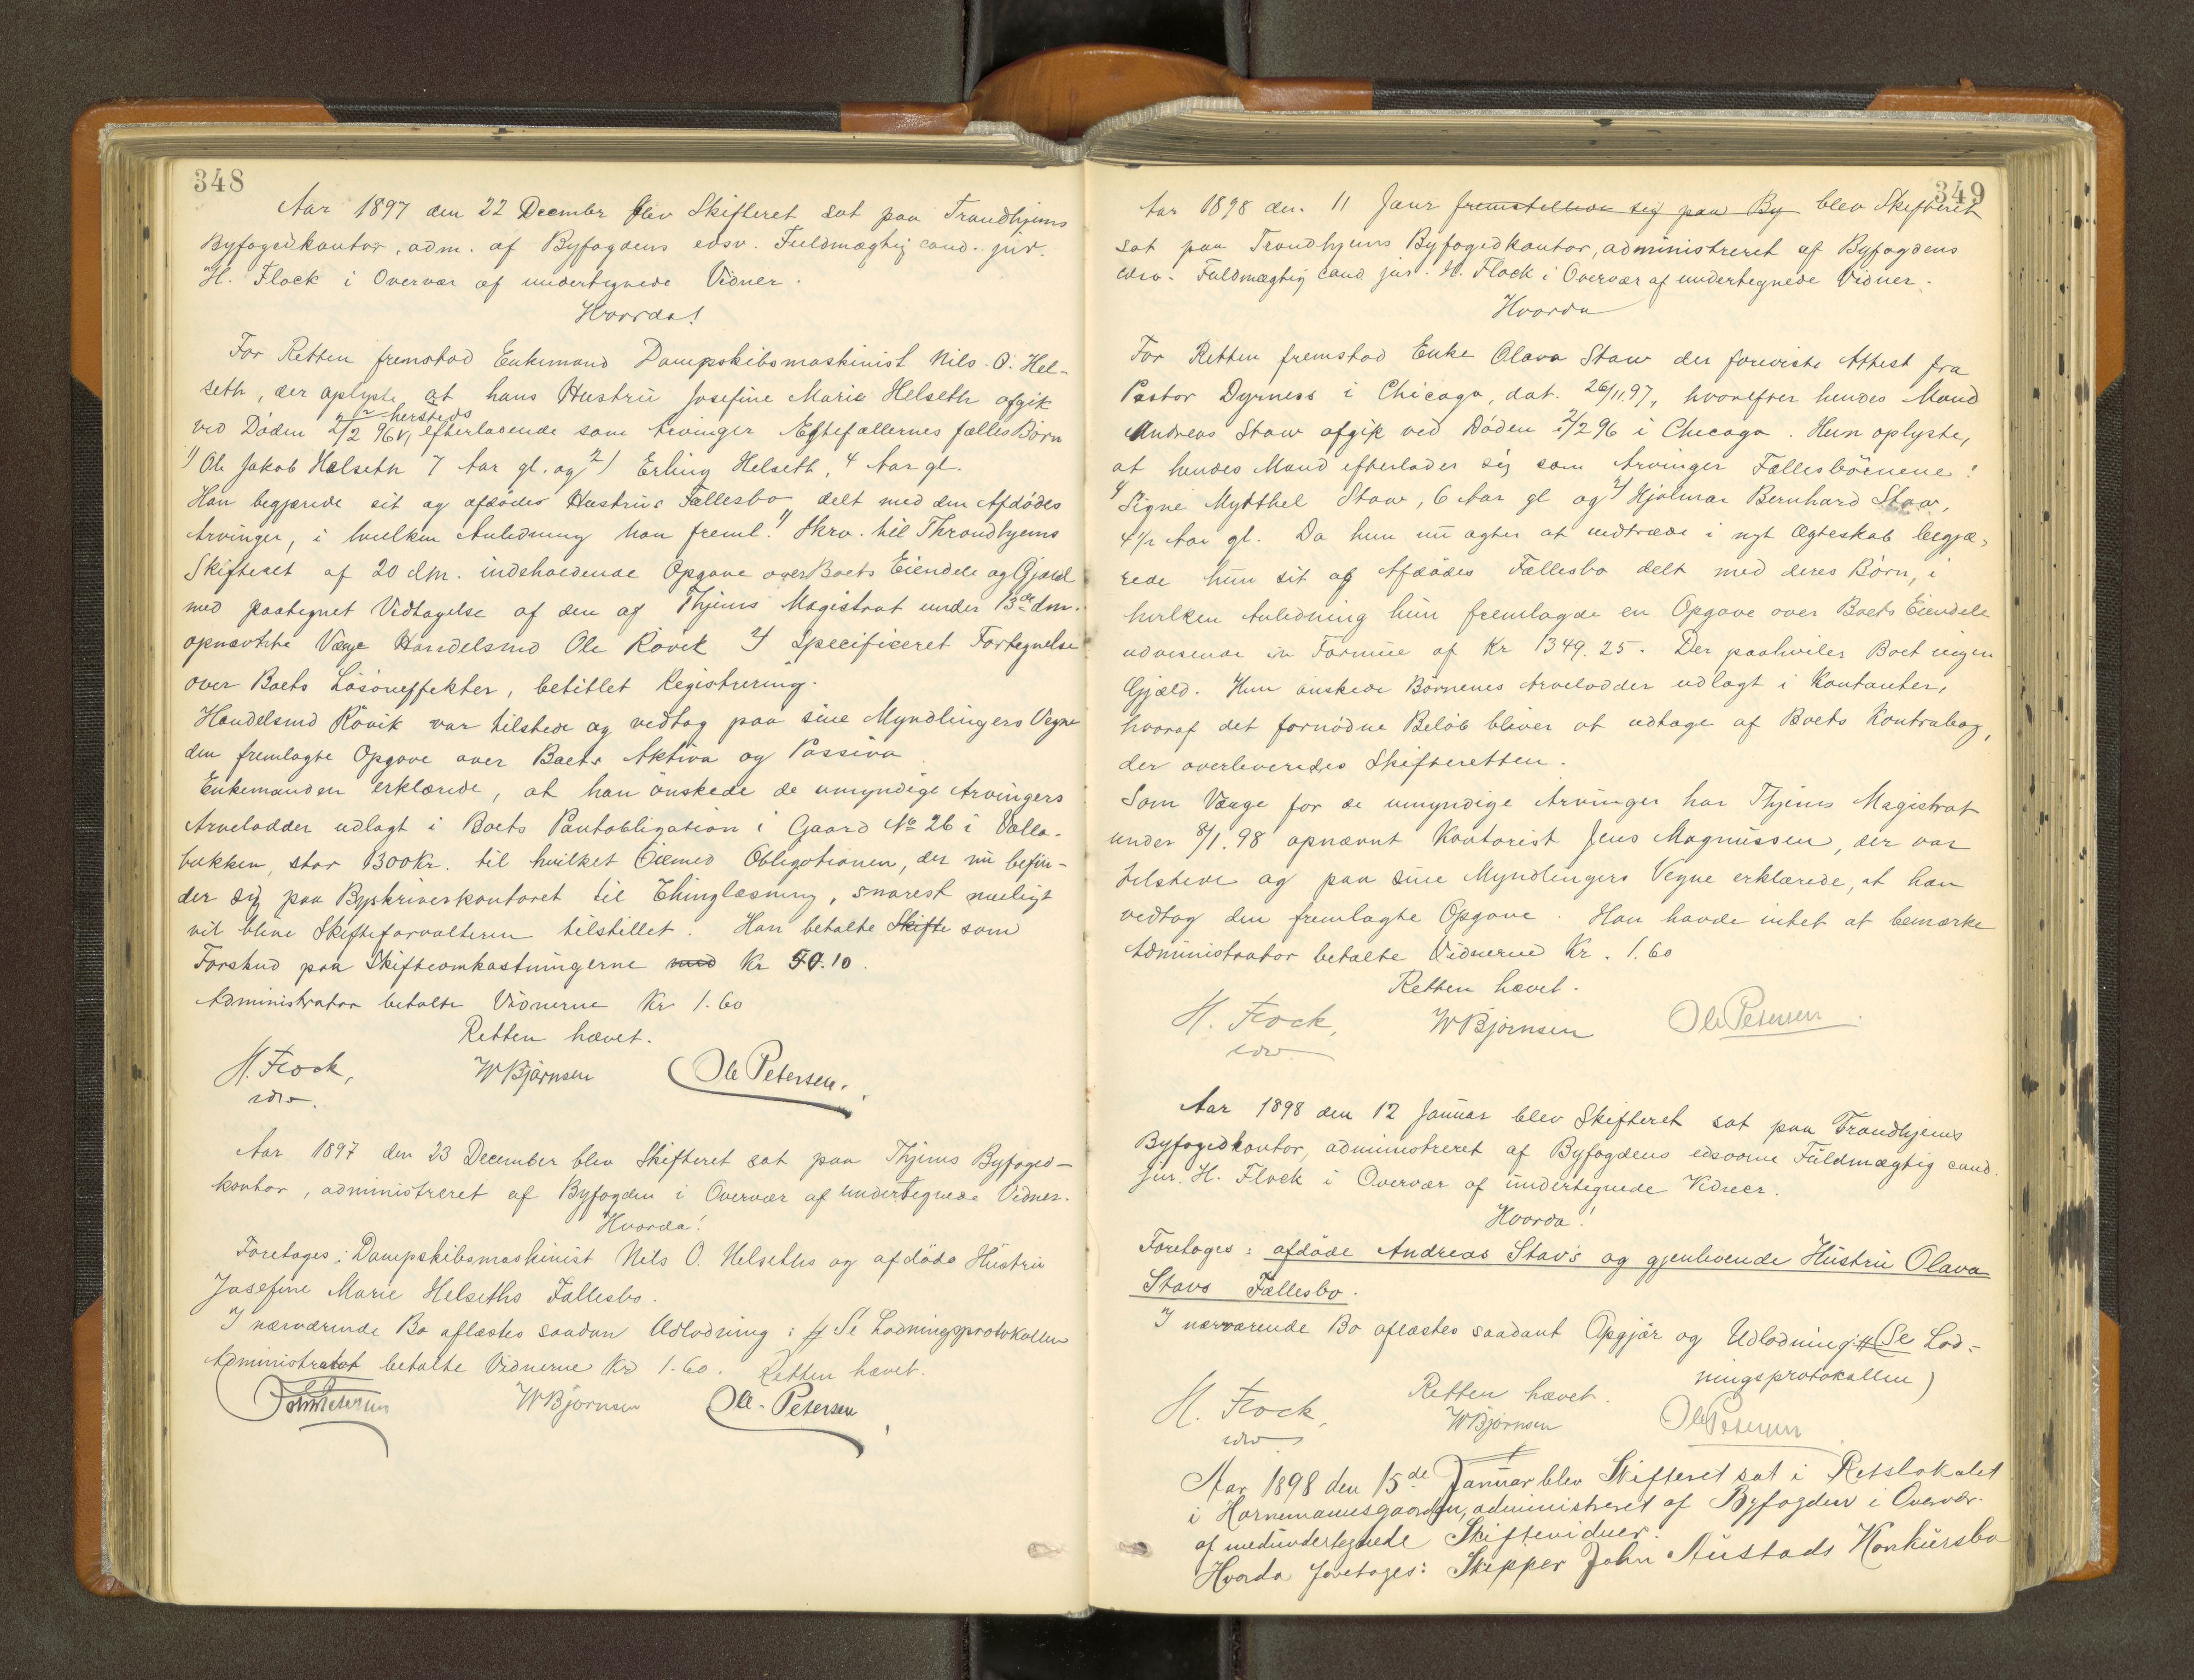 348
Aar 1897 den 22 December blev Skifteret sat paa Trondhjems
Byfogedkontor, adm. af Byfogdens edsv. Fuldmægtig cand. jur.
H. Flock i Overvær af undertegnede Vidner.
Hvorda!
For Retten fremstod Enkemand Dampskibsmaskinist Nils O. Hel-
seth, der oplyste at hans Hustru Josefine Marie Helseth afgik
hersteds
ved Døden 2/2 96 efterladende som Arvinger Ægtefællernes fælles Børn
1) Ole Jakob Helseth 7 Aar gl. og 2) Erling Helseth, 4 Aar gl.
Han begjærede sit og afdødes Hustrus Fællesbo delt med den Afdødes
Arvinger, i hvilken Anledning han freml. 1) Skrv. til Throndhjems
Skifteret af 20 dm. indeholdende Opgave over Boets Eiendele og Gjæld
med paategnet Vedtagelse af den af Thjems Magistrat under 13de dm.
opnævnte Værge Handelsmd Ole Røvik 2) Specificeret Fortegnelse
over Boets Løsøreeffekter, betitlet Registrering.
Handelsmd Røvik var tilstede og vedtog paa sine Myndlingers Vegne
den fremlagte Opgave over Boets Aktiva og Passiva
Enkemanden erklærede, at han ønskede de umyndige Arvingers
Arvelodder udlagt i Boets Pantobligation i Gaard No 26 i Valla-
bakken, stor 1300 Kr. til hvilket Øiemed Obligationen, der nu befin-
der sig paa Byskriverkontoret til Thinglæsning, snarest muligt
vil blive Skifteforvalteren tilstillet. Han betalte Skifte som
Forskud paa Skifteomkostningerne med Kr 50.10.
Administrator betalte Vidnerne Kr 1.60
Retten hævet.
H. Flock, W Bjørnsen Ole Petersen.
edsv.
Aar 1897 den 23 December blev Skifteret sat paa Thjems Byfoged-
kontor, administreret af Byfogden i Overvær af undertegnede Vidner.
Hvorda!
Foretages: Dampskibsmaskinist Nils O. Helseths og afdøde Hustru
Josefine Marie Helseths Fællesbo.
I nærværende Bo aflæstes saadan Udlodning: Se Lodningsprotokollen
Administrator betalte Vidnerne Kr 1.60. Retten hævet.
W Bjørnsen Ole Petersen
349
Aar 1898 den 11 Janr fremstillede sig paa By blev Skifteret
sat paa Trondhjems Byfogedkontor, administreret af Byfogdens
edsv. Fuldmægtig cand jur. H. Flock i Overvær af undertegnede Vidner.
Hvorda
For Retten fremstod Enke Olava Staw der foreviste Attest fra
Pastor Dyrness i Chicago, dat. 26/11.97, hvorefter hendes Mand
Andreas Staw afgik ved Døden 2/2 96 i Chicago. Hun oplyste,
at hendes Mand efterlader sig som Arvinger Fællesbørnene:
1) Signe Myrthel Staw, 6 Aar gl og 2) Hjalmar Bernhard Staw,
4 1/2 Aar gl. Da hun nu agter at indtræde i nyt Ægteskab begjæ-
rede hun sit og Afdødes Fællesbo delt med deres Børn, i
hvilken Anledning hun fremlagde en Opgave over Boets Eiendele
udvisende en Formue af Kr 1349.25. Der paahviler Boet ingen
Gjæld. Hun ønskede Børnenes Arvelodder udlagt i Kontanter,
hvoraf det fornødne Beløb bliver at udtage af Boets Kontrabog,
der overleveredes Skifteretten.
Som Værge for de umyndige Arvinger har Thjems Magistrat
under 8/1.98 opnævnt Kontorist Jens Magnussen, der var
tilstede og paa sine Myndlingers Vegne erklærede, at han
vedtog den fremlagte Opgave. Han havde intet at bemærke
Administrator betalte Vidnerne Kr. 1.60
Retten hævet.
H. Flock, W Bjørnsen Ole Petersen.
edsv.
Aar 1898 den 12 Januar blev Skifteret sat paa Trondhjems
Byfogedkontor, administreret af Byfogdens edsvorne Fuldmægtig cand.
jur. H. Flock i Overvær af undertegnede Vidner.
Hvorda!
Foretages: afdøde Andreas Stav's og gjenlevende Hustru Olava
Stavs Fællesbo.
I nærværende Bo aflæstes saadant Opgjør og Udlodning: (Se Lod-
ningsprotokollen)
Retten hævet.
H. Flock, W Bjørnsen Ole Petersen
edsv
Aar 1898 den 15de Januar blev Skifteret sat i Retslokalet
i Hornemannsgaarden, administreret af Byfogden i Overvær
af medundertegnede Skiftevidner.
Hvorda foretages: Skipper John Austads Konkursbo